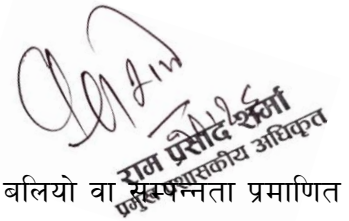 राम प्रसाद शर्मा
प्रमुख प्रशासकीय अधिकृत
बलियो वा सम्पन्नता प्रमाणित